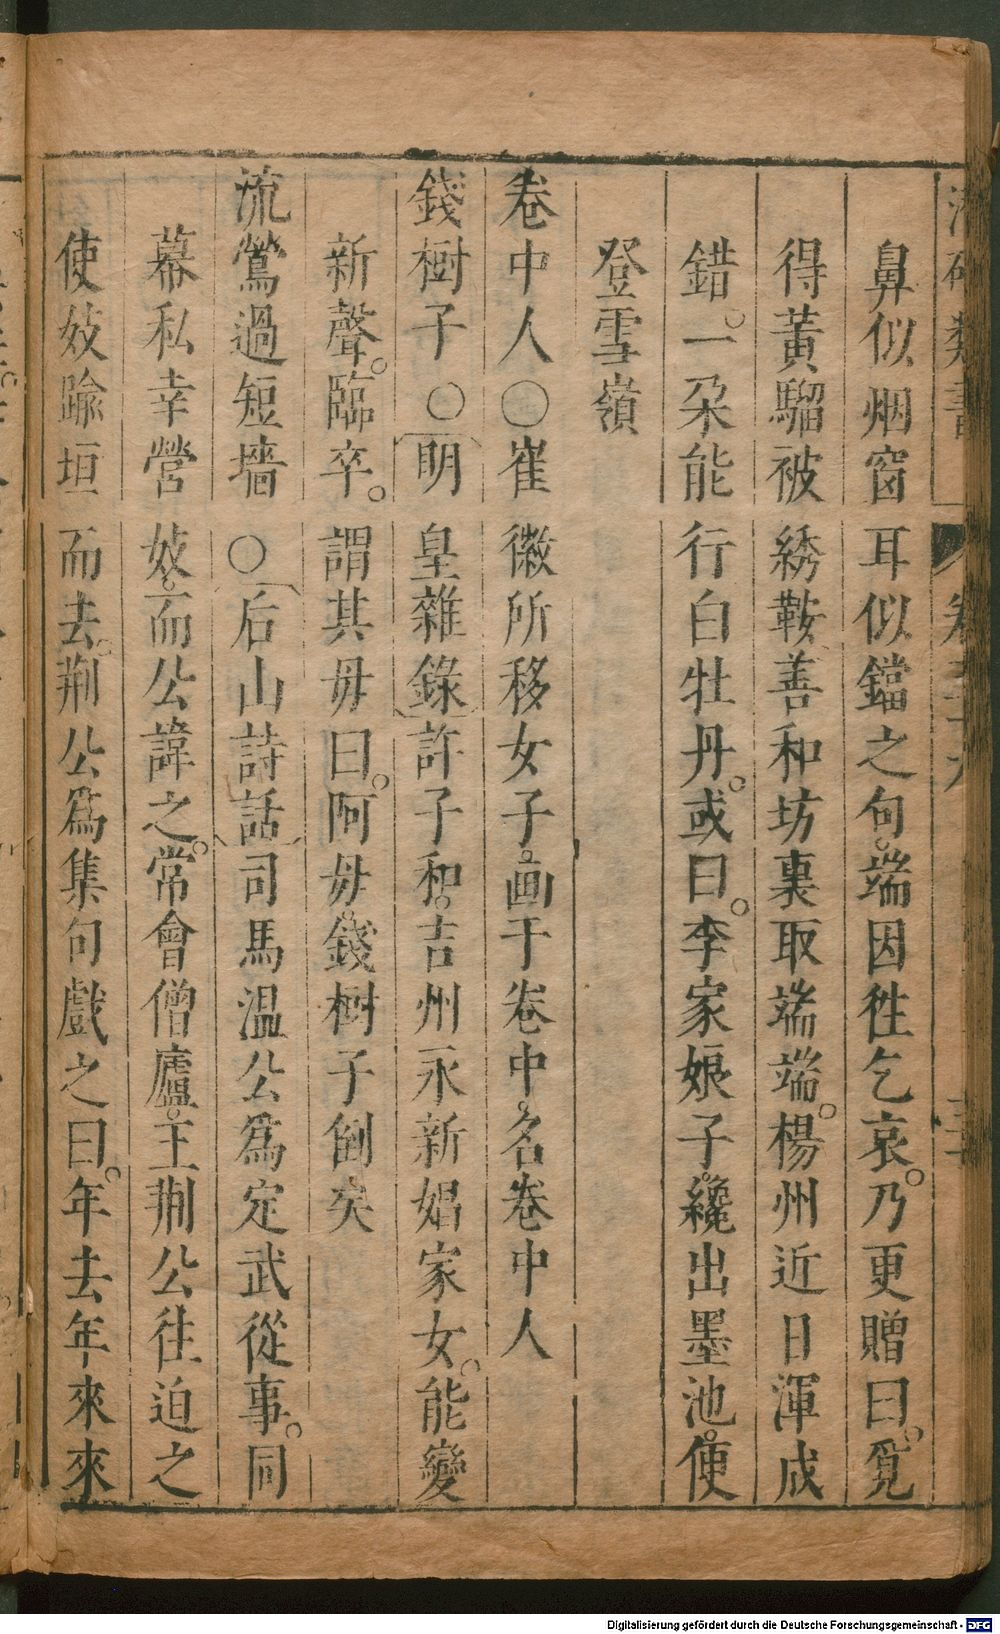 鼻似烟窗耳似鐺之句。端因徃乞哀。乃更贈曰。覓
得黃騮被綉鞍善和坊裏取端端。楊州近日渾成
錯。一朶能行白牡丹。或曰。李家娘子。纔出墨池。便
登雪嶺
卷中人〇崔徽所移女子。画于卷中。名卷中人
錢樹子〇明皇雜錄許子和。吉州永新娼家女。能變
新聲。臨卒。謂其毋曰。阿毋。錢樹子倒矣
流鶯過短墻〇后山詩話司馬溫公爲定武從事。同
幕私幸營妓。而公諱之。常會僧廬。王荆公往迫之
使妓踰垣而去。荆公爲集句戲之曰。年去年來來
Digitalisierung gefördert durch die Deutsche Forschungsgemeinschaft - DFG